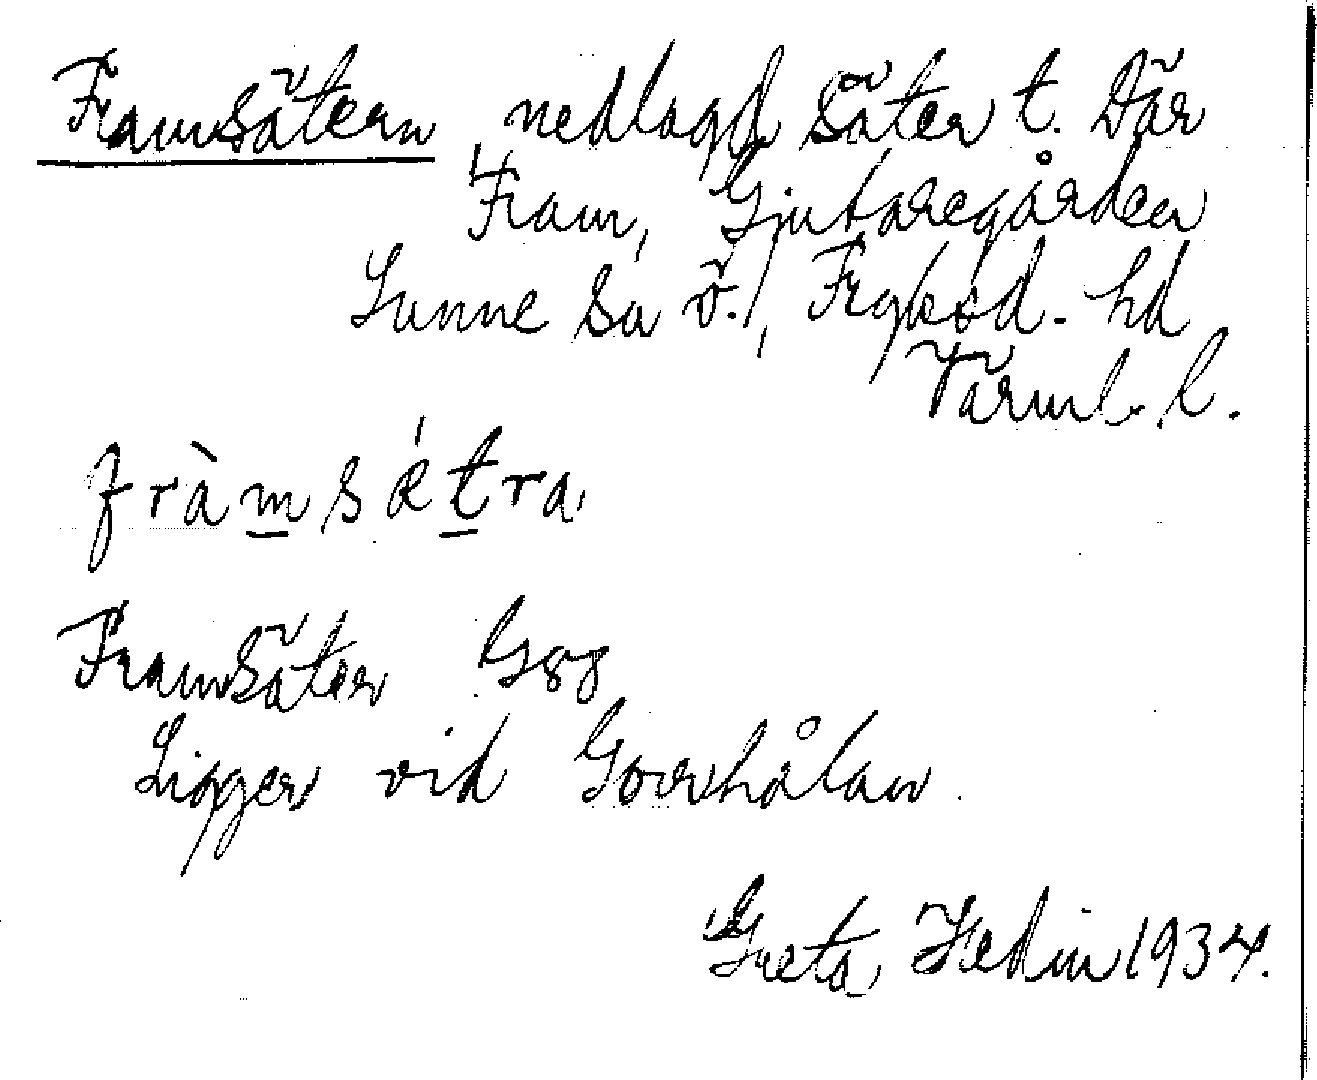 Framsätern nedlagd säter t. Där
Fram, Gjutaregården
Sunne sn ö., Fryksd. hd
Värml. l.
fràmsǽtra
Framsäter Gsg
Ligger vid Gorrhålan.
Greta Hedin 1934.